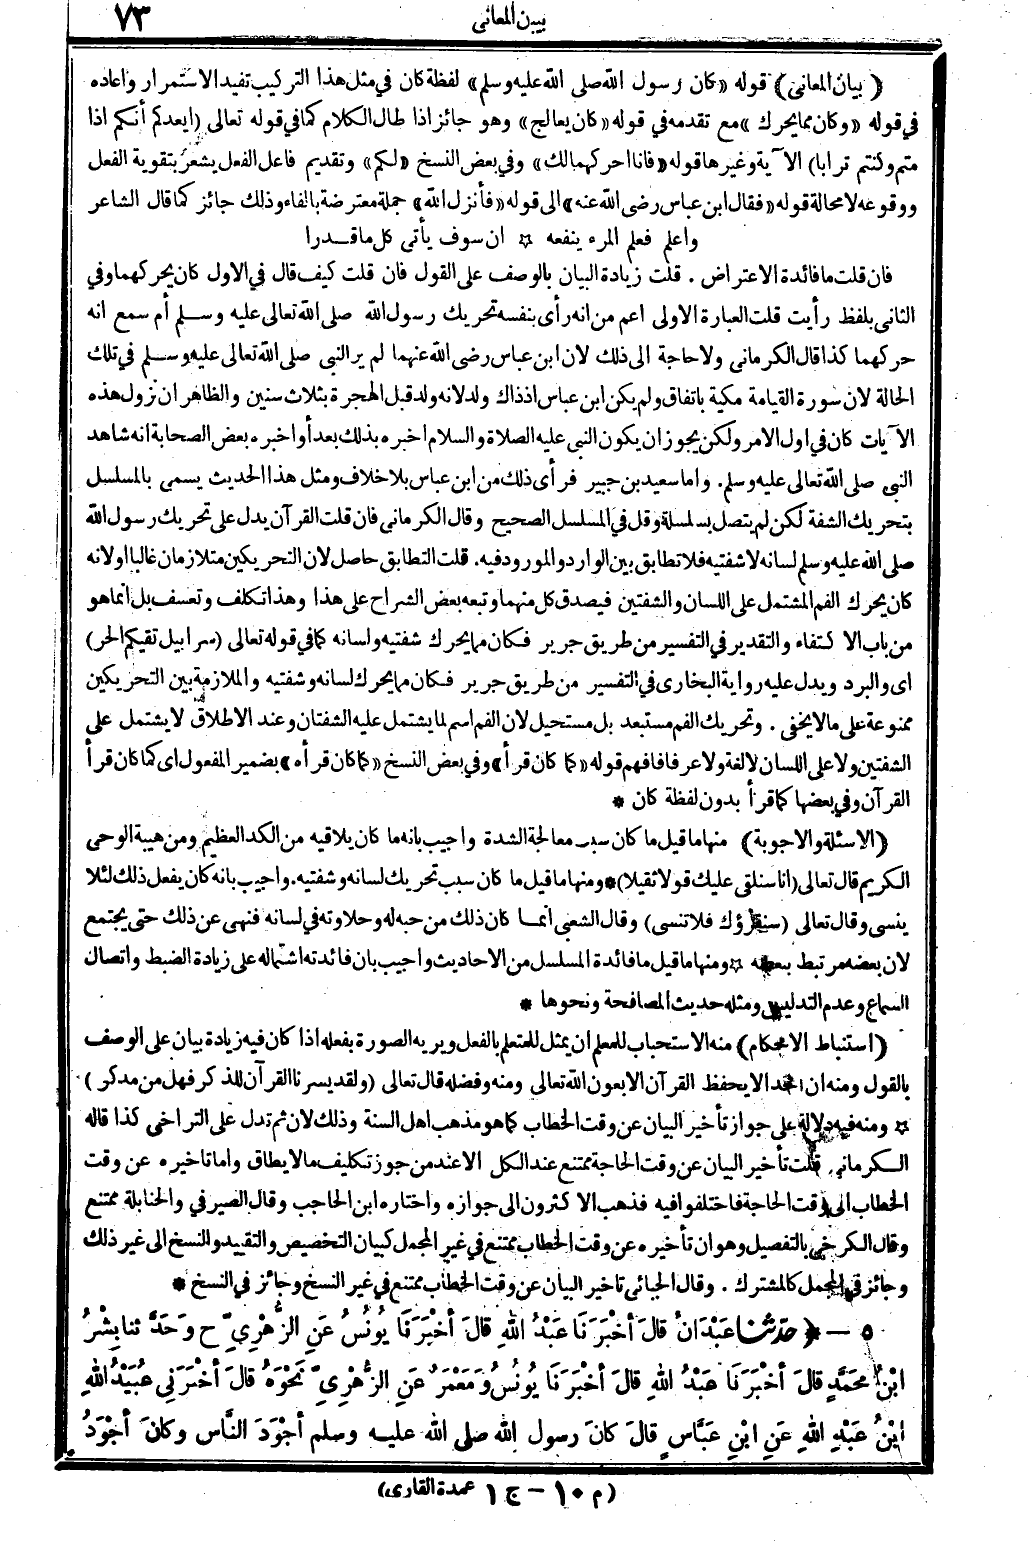 ٧٣
بيان المعاني
(بيان المعاني) قوله «كان رسول الله صلى الله عليه وسلم» لفظة كان في مثل هذا التركيب تفيد الاستمرار واعاده
في قوله «وكان مما يحرك» مع تقدمه في قوله «كان يعالج» وهو جائز اذا طال الكلام كما في قوله تعالى (ايعدكم أنكم اذا
متم وكنتم ترابا) الآية وغيرها قوله «فانا احركهما لك» وفي بعض النسخ «لكم» وتقديم فاعل الفعل يشعر بتقوية الفعل
ووقوعه لا محالة قوله «فقال ابن عباس رضى الله عنه» الى قوله «فأنزل الله» جملة معترضة بالفاء وذلك جائز كما قال الشاعر
واعلم فعلم المرء ينفعه ☆ ان سوف يأتى كل ما قــدرا
فان قلت ما فائدة الاعتراض . قلت زيادة البيان بالوصف على القول فان قلت كيف قال في الاول كان يحركهما وفي
الثانى بلفظ رأيت قلت العبارة الاولى اعم من انه رأى بنفسه تحريك رسول الله صلى الله تعالى عليه وسلم أم سمع انه
حركهما كذا قال الكرمانى ولا حاجة الى ذلك لان ابن عباس رضى الله عنهما لم ير النبي صلى الله تعالى عليه وسلم في تلك
الحالة لان سورة القيامة مكية باتفاق ولم يكن ابن عباس اذ ذاك ولد لانه ولد قبل الهجرة بثلاث سنين والظاهر ان نزول هذه
الآيات كان في اول الامر ولكن يجوز ان يكون النبي عليه الصلاة والسلام اخبره بذلك بعد أو اخبره بعض الصحابة انه شاهد
النبى صلى الله تعالى عليه وسلم. واما سعيد بن جبير فرأى ذلك من ابن عباس بلا خلاف ومثل هذا الحديث يسمى بالمسلسل
بتحريك الشفة لكن لم يتصل بسلسلة وقل في المسلسل الصحيح وقال الكرمانى فان قلت القرآن يدل على تحريك رسول الله
صلى الله عليه وسلم لسانه لا شفتيه فلا تطابق بين الوارد والمورود فيه. قلت التطابق حاصل لان التحريكين متلازمان غالبا او لانه
كان يحرك الفم المشتمل على اللسان والشفتين فيصدق كل منهما وتبعه بعض الشراح على هذا وهذا تكلف وتعسف بل انما هو
من باب الاكتفاء والتقدير في التفسير من طريق جرير فكان مما يحرك شفتيه ولسانه كما في قوله تعالى (سرابيل تقيكم الحر)
اى والبرد ويدل عليه رواية البخارى في التفسير من طريق جرير فكان مما يحرك لسانه وشفتيه والملازمة بين التحريكين
ممنوعة على ما لا يخفى . وتحريك الفم مستبعد بل مستحيل لان الفم اسم لما يشتمل عليه الشفتان وعند الاطلاق لا يشتمل على
الشفتين ولا على اللسان لا لغة ولا عرفا فافهم قوله «كما كان قرأ» وفي بعض النسخ «كما كان قرأه» بضمير المفعول اى كما كان قرأ
القرآن وفي بعضها كما قرأ بدون لفظة كان *
(الاسئلة والاجوبة) منها ما قيل ما كان سبب معالجة الشدة واجيب بانه ما كان يلاقيه من الكد العظيم ومن هيبة الوحى
الكريم قال تعالى (انا سنلقى عليك قولا ثقيلا)* ومنها ما قيل ما كان سبب تحريك لسانه وشفتيه. واجيب بانه كان يفعل ذلك لئلا
ينسى وقال تعالى (سنقرؤك فلا تنسى) وقال الشعبى انما كان ذلك من حبه له وحلاوته في لسانه فنهى عن ذلك حتى يجتمع
لان بعضه مرتبط ببعضه ☆ ومنها ما قيل ما فائدة المسلسل من الاحاديث واجيب بان فائدته اشتماله على زيادة الضبط واتصال
السماع وعدم التدليس ومثله حديث المصافحة ونحوها *
(استنباط الاحكام) منه الاستحباب للمعلم ان يمثل للمتعلم بالفعل ويريه الصورة بفعله اذا كان فيه زيادة بيان على الوصف
بالقول ومنه ان احدا لا يحفظ القرآن الا بعون الله تعالى ومنه وفضله قال تعالى (ولقد يسرنا القرآن للذكر فهل من مدكر)
☆ ومنه فيه دلالة على جواز تأخير البيان عن وقت الخطاب كما هو مذهب اهل السنة وذلك لان ثم تدل على التراخى كذا قاله
الكرمانى. قلت تأخير البيان عن وقت الحاجة ممتنع عند الكل الا عند من جوز تكليف ما لا يطاق واما تاخيره عن وقت
الخطاب الى وقت الحاجة فاختلفوا فيه فذهب الاكثرون الى جوازه واختاره ابن الحاجب وقال الصيرفي والحنابلة ممتنع
وقال الكرخي بالتفصيل وهو ان تأخيره عن وقت الخطاب ممتنع في غير المجمل كبيان التخصيص والتقييد والنسخ الى غير ذلك
وجائز في المجمل كالمشترك . وقال الجبائى تاخير البيان عن وقت الخطاب ممتنع في غير النسخ وجائز في النسخ *
٥ – ﴿حَدَّثَنَا عَبْدَانُ قَالَ أَخْبَرَنَا عَبْدُ اللهِ قَالَ أَخْبَرَنَا يُونُسُ عَنِ الزُّهْرِيِّ ح وَحَدَّثَنَا بِشْرُ
ابْنُ مُحَمَّدٍ قَالَ أَخْبَرَنَا عَبْدُ اللهِ قَالَ أَخْبَرَنَا يُونُسُ وَمَعْمَرٌ عَنِ الزُّهْرِيِّ نَحْوَهُ قَالَ أَخْبَرَنِي عُبَيْدُ اللهِ
ابْنُ عَبْدِ اللهِ عَنِ ابْنِ عَبَّاسٍ قَالَ كَانَ رسول الله صلى الله عليه وسلم أَجْوَدَ النَّاسِ وَكَانَ أَجْوَدُ
(م ١٠ – ج ١ عمدة القارى)